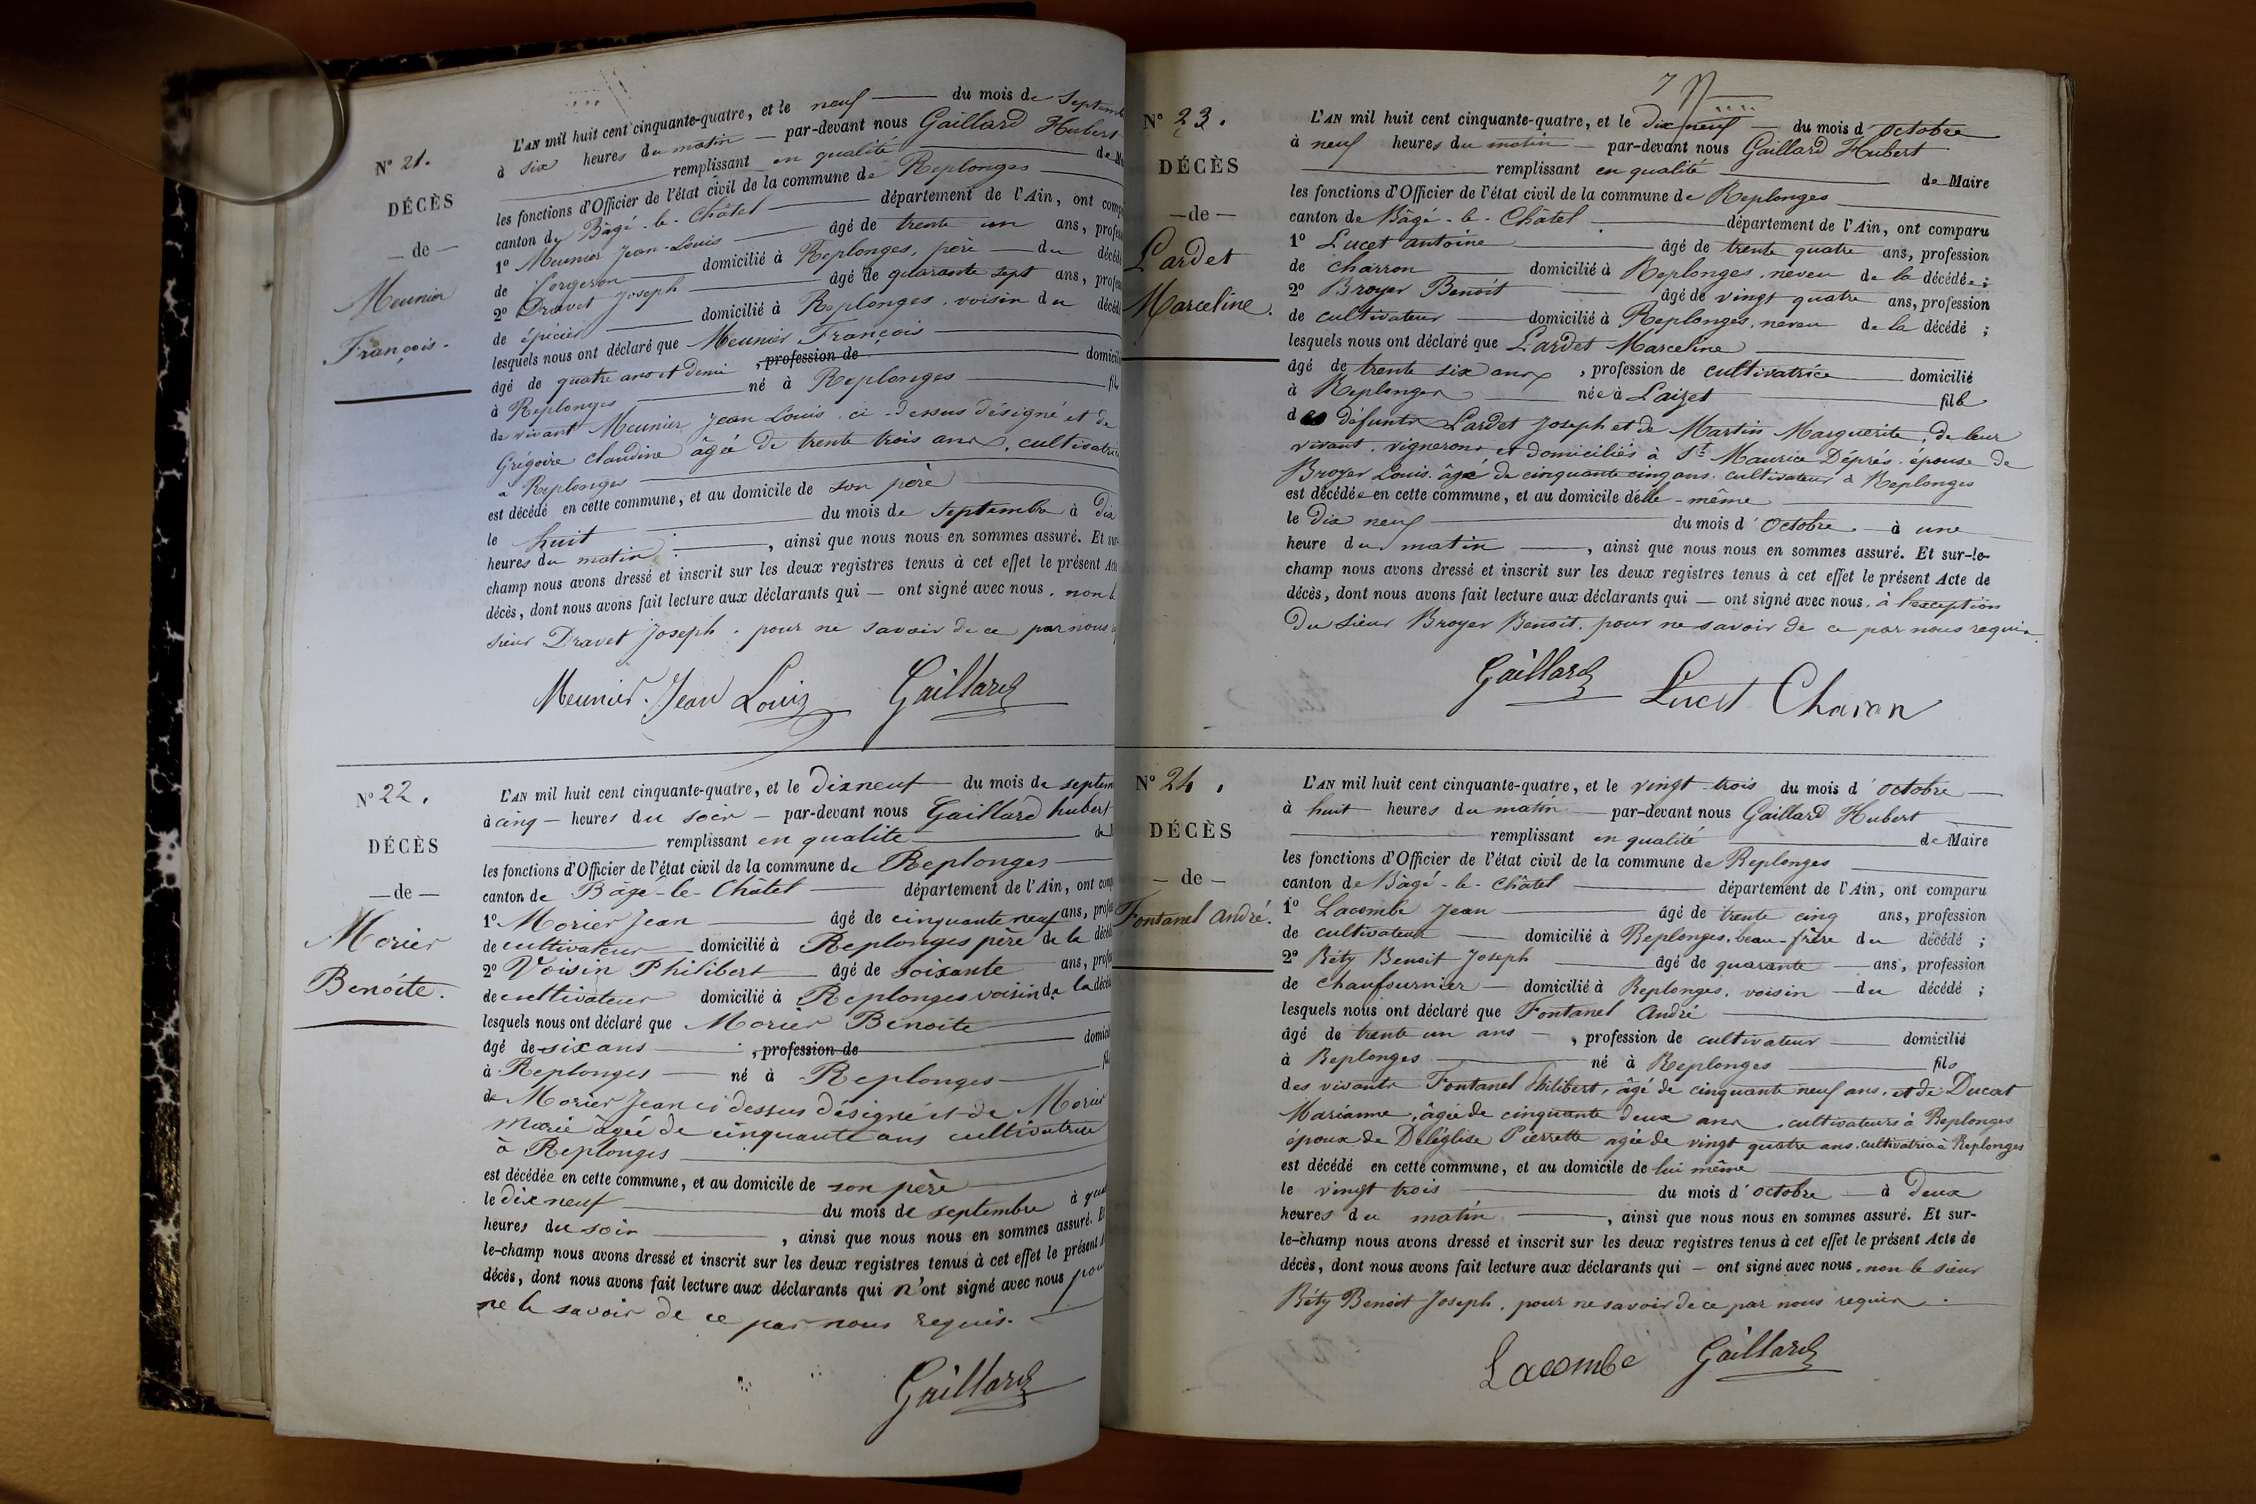 N° 21.
DÉCÈS
— de —
Meunier
François.
L'AN mil huit cent cinquante-quatre, et le neuf du mois de Septemb
à six heures du matin par-devant nous Gaillard Hubert
remplissant en qualité de M
les fonctions d'Officier de l'état civil de la commune de Replonges
canton de Bâgé-le-Châtel département de l'Ain, ont comp
1° Meunier Jean-Louis âgé de trente un ans, profes
de forgeron domicilié à Replonges, père du décédé
2° Dravet Joseph âgé de quarante sept ans, profes
de épicier domicilié à Replonges, voisin du décédé
lesquels nous ont déclaré que Meunier François
âgé de quatre ans et demi , profession de domicilié
à Replonges né à Replonges fils
de vivant Meunier Jean Louis, ci-dessus désigné et de
Grégoire Claudine âgée de trente trois ans, cultivatrice
à Replonges
est décédé en cette commune, et au domicile de son père
le huit du mois de Septembre à dix
heures du matin , ainsi que nous nous en sommes assuré. Et sur-
champ nous avons dressé et inscrit sur les deux registres tenus à cet effet le présent Acte
décès, dont nous avons fait lecture aux déclarants qui — ont signé avec nous, non le
sieur Dravet Joseph, pour ne savoir de ce par nous
Meunier Jean Louis Gaillard
N° 22.
DÉCÈS
— de —
Morier
Benoite.
L'AN mil huit cent cinquante-quatre, et le dix neuf du mois de septem
à cinq heures du soir par-devant nous Gaillard hubert
remplissant en qualité de M
les fonctions d'Officier de l'état civil de la commune de Replonges
canton de Bâgé-le-Châtel département de l'Ain, ont comp
1° Morier Jean âgé de cinquante neuf ans, profes
de cultivateur domicilié à Replonges père de la décédé
2° Voisin Philibert âgé de soixante ans, profes
de cultivateur domicilié à Replonges voisin de la décédé
lesquels nous ont déclaré que Morier Benoite
âgé de six ans , profession de domicil
à Replonges né à Replonges fil
de Morier Jean ci dessus désigné et de Morier
Marie agée de cinquante ans cultivatrice
à Replonges
est décédée en cette commune, et au domicile de son père
le dix neuf du mois de septembre à qua
heures du soir , ainsi que nous nous en sommes assuré. Et
le-champ nous avons dressé et inscrit sur les deux registres tenus à cet effet le présent A
décès, dont nous avons fait lecture aux déclarants qui n'ont signé avec nous pour
ne le savoir de ce par nous requis.
Gaillard
7
N° 23.
DÉCÈS
— de —
Lardet
Marceline.
L'AN mil huit cent cinquante-quatre, et le dix neuf du mois d'Octobre
à neuf heures du matin par-devant nous Gaillard Hubert
remplissant en qualité de Maire
les fonctions d'Officier de l'état civil de la commune de Replonges
canton de Bâgé-le-Châtel département de l'Ain, ont comparu
1° Lucet antoine âgé de trente quatre ans, profession
de charron domicilié à Replonges, neveu de la décédée;
2° Broyer Benoit âgé de vingt quatre ans, profession
de cultivateur domicilié à Replonges, neveu de la décédé ;
lesquels nous ont déclaré que Lardet Marceline
âgé de trente six ans , profession de cultivatrice domicilié
à Replonges née à Laizet fille
de défunts Lardet Joseph et de Martin Marguerite, de leur
vivant, vignerons et domiciliés à St Maurice Déprés, épouse de
Broyer Louis, âgé de cinquante cinq ans, cultivateur à Replonges
est décédée en cette commune, et au domicile d'elle-même
le dix neuf du mois d'Octobre à une
heure du matin , ainsi que nous nous en sommes assuré. Et sur-le-
champ nous avons dressé et inscrit sur les deux registres tenus à cet effet le présent Acte de
décès, dont nous avons fait lecture aux déclarants qui — ont signé avec nous, à l'exception
du sieur Broyer Benoit, pour ne savoir de ce par nous requis.
Gaillard Lucet Charon
N° 24.
DÉCÈS
— de —
Fontanel André.
L'AN mil huit cent cinquante-quatre, et le vingt trois du mois d'octobre
à huit heures du matin par-devant nous Gaillard Hubert
remplissant en qualité de Maire
les fonctions d'Officier de l'état civil de la commune de Replonges
canton de Bâgé-le-Châtel département de l'Ain, ont comparu
1° Lacombe Jean âgé de trente cinq ans, profession
de cultivateur domicilié à Replonges, beau-frère du décédé ;
2° Réty Benoit Joseph âgé de quarante ans, profession
de chaufournier domicilié à Replonges, voisin du décédé ;
lesquels nous ont déclaré que Fontanel André
âgé de trente un ans , profession de cultivateur domicilié
à Replonges né à Replonges fils
des vivants Fontanel Philibert, âgé de cinquante neuf ans, et de Ducat
Marianne, âgée de cinquante deux ans, cultivateurs à Replonges
époux de Deléglise Pierrette agée de vingt quatre ans, cultivatrice à Replonges
est décédé en cette commune, et au domicile de lui même
le vingt trois du mois d'octobre à deux
heures du matin , ainsi que nous nous en sommes assuré. Et sur-
le-champ nous avons dressé et inscrit sur les deux registres tenus à cet effet le présent Acte de
décès, dont nous avons fait lecture aux déclarants qui — ont signé avec nous, non le sieur
Réty Benoit Joseph, pour ne savoir de ce par nous requis.
Lacombe Gaillard